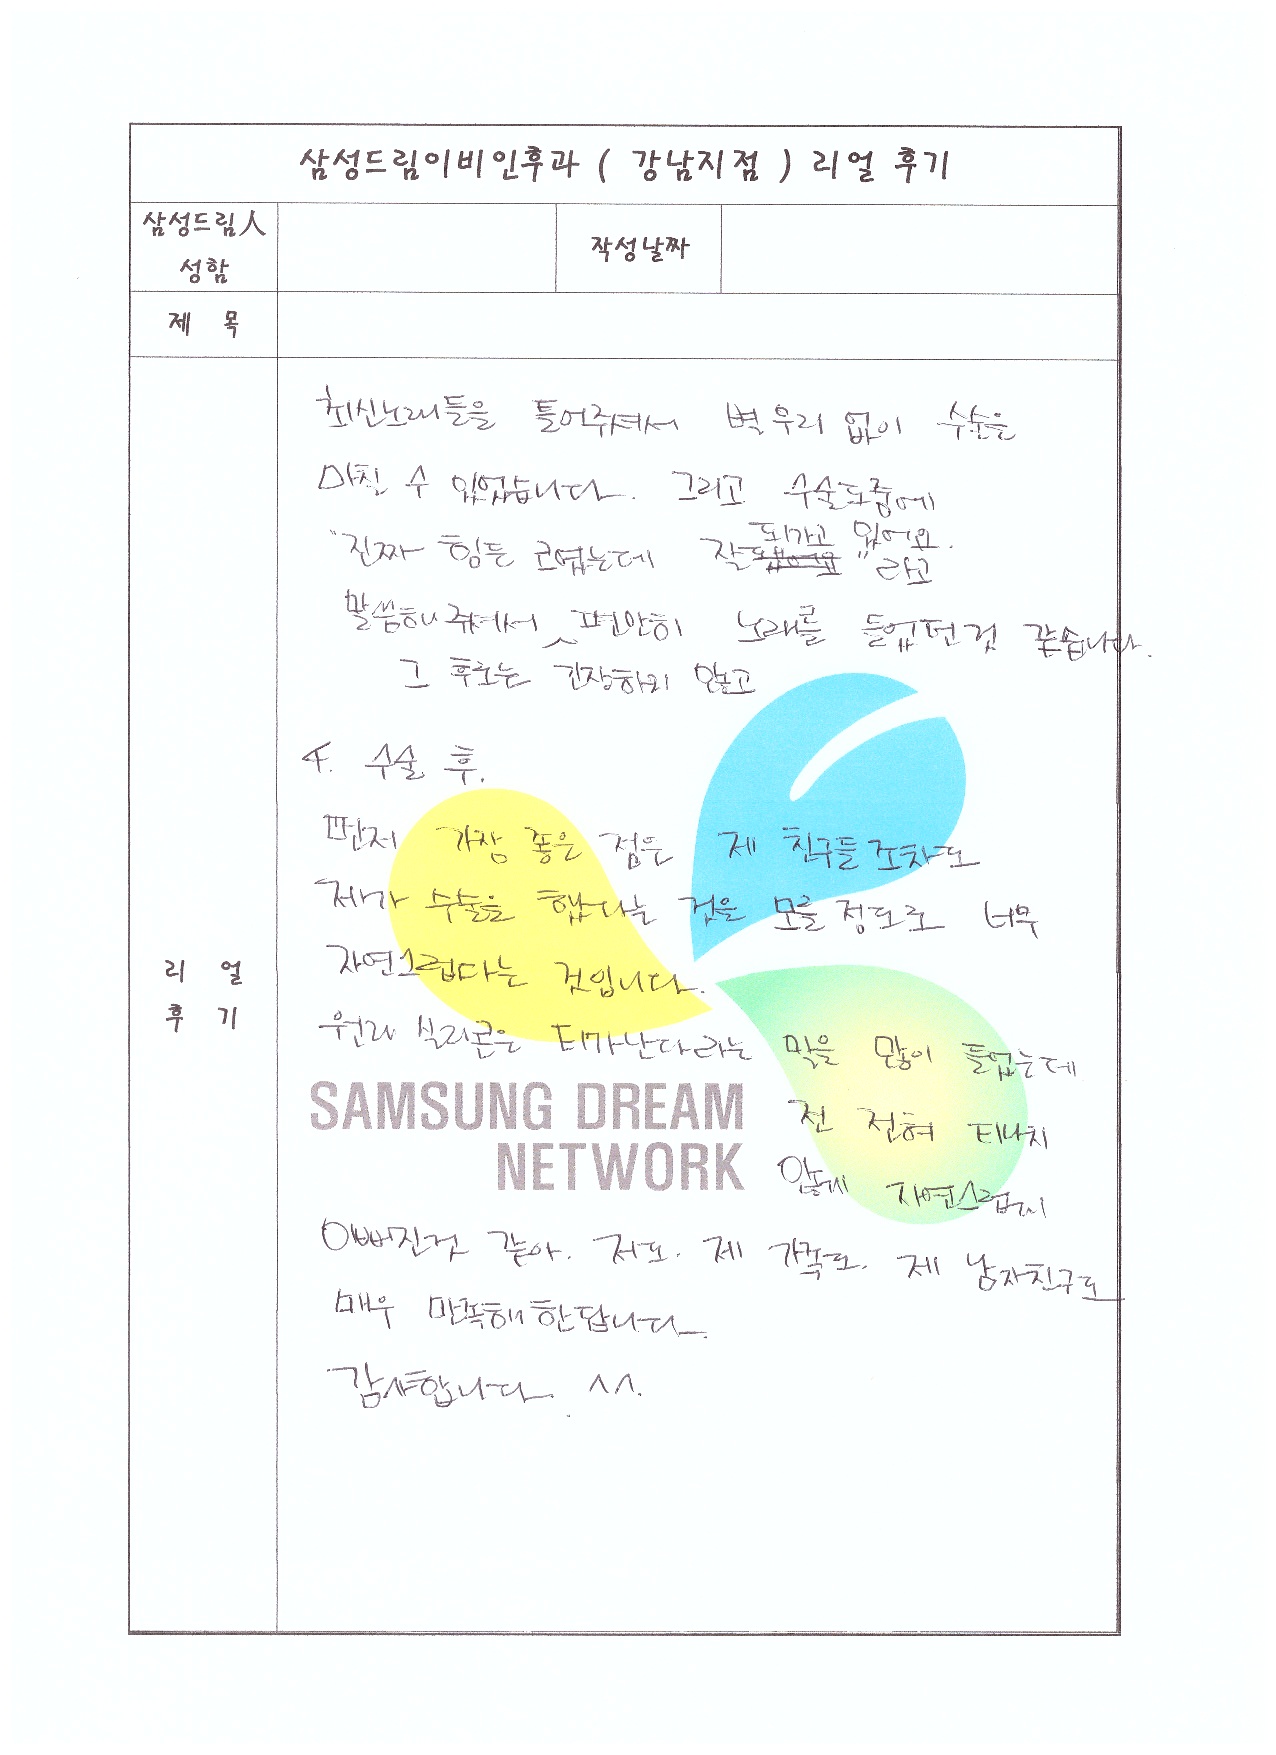 삼성드림이비인후과 ( 강남지점 ) 리얼 후기
삼성드림人
성함
작성날짜
제 목
최신노래들을 틀어주셔서 별 무리 없이 수술을
마칠 수 있었습니다. 그리고 수술도중에
"진짜 힘든 코였는데 잘 되가고 있어요." 라고
말씀해 주셔서 편안히 노래를 들었던것 같습니다.
그 후로는 긴장하지 않고
4. 수술 후.
먼저 가장 좋은 점은 제 친구들 조차도
제가 수술을 했다는 것을 모를 정도로 너무
자연스럽다는 것입니다.
원래 실리콘은 티가난다라는 말을 많이 들었는데
전 전혀 티나지
않게 자연스럽게
이뻐진것 같아. 저도. 제 가족도. 제 남자친구도
매우 만족해 한답니다.
감사합니다. ^^.
리 얼
후 기
SAMSUNG DREAM
NETWORK